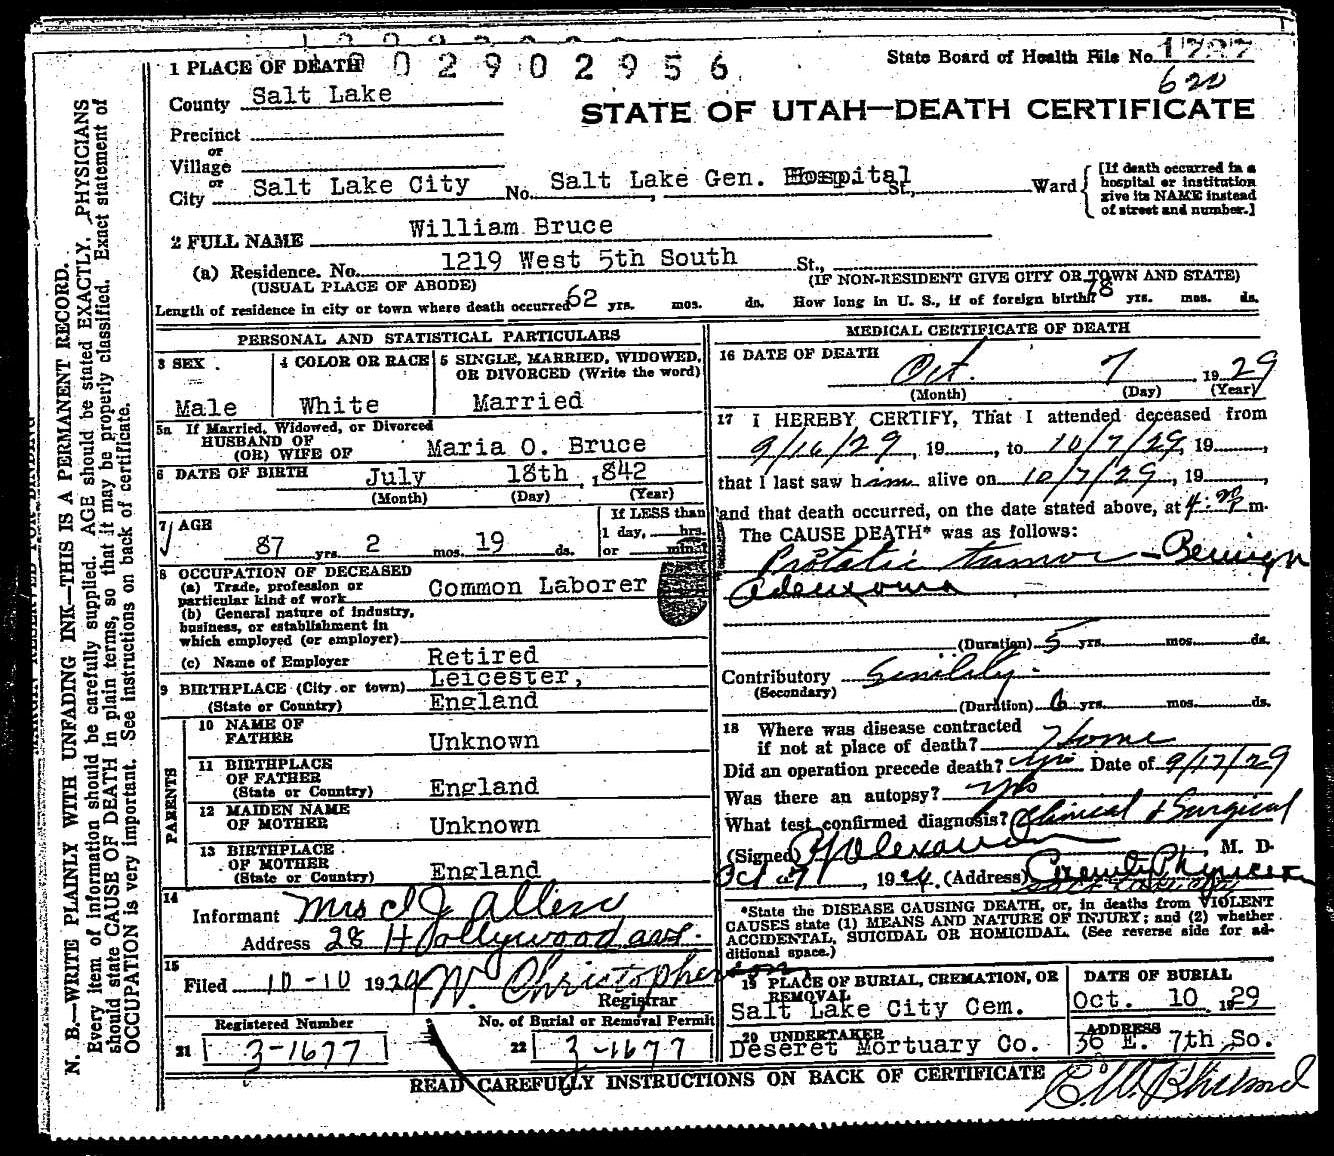 1 PLACE OF DEATH 0 0 2 9 0 2 9 5 6
State Board of Health File No. 1727
620
County Salt Lake
STATE OF UTAH—DEATH CERTIFICATE
Precinct
or
Village
or
City Salt Lake City No. Salt Lake Gen. Hospital St., Ward
[If death occurred in a hospital or institution give its NAME instead of street and number.]
2 FULL NAME William Bruce
(a) Residence. No. 1219 West 5th South St.,
(USUAL PLACE OF ABODE) (IF NON-RESIDENT GIVE CITY OR TOWN AND STATE)
Length of residence in city or town where death occurred 62 yrs. mos. ds. How long in U. S., if of foreign birth? 78 yrs. mos. ds.
PERSONAL AND STATISTICAL PARTICULARS
3 SEX 4 COLOR OR RACE 5 SINGLE, MARRIED, WIDOWED, OR DIVORCED (Write the word)
Male White Married
5a If Married, Widowed, or Divorced
HUSBAND OF
(OR) WIFE OF Maria O. Bruce
6 DATE OF BIRTH July 18th, 1842
(Month) (Day) (Year)
7 AGE If LESS than
1 day, hrs.
87 yrs. 2 mos. 19 ds. or min.
8 OCCUPATION OF DECEASED
(a) Trade, profession or
particular kind of work Common Laborer
(b) General nature of industry,
business, or establishment in
which employed (or employer)
(c) Name of Employer Retired
9 BIRTHPLACE (City or town) Leicester,
(State or Country) England
PARENTS
10 NAME OF
FATHER Unknown
11 BIRTHPLACE
OF FATHER
(State or Country) England
12 MAIDEN NAME
OF MOTHER Unknown
13 BIRTHPLACE
OF MOTHER
(State or Country) England
14
Informant Mrs J Allen
Address 28 Hollywood ave.
15
Filed 10-10 1929 W. Christopherson
Registrar
Registered Number No. of Burial or Removal Permit
21 3-1677 22 3-1677
MEDICAL CERTIFICATE OF DEATH
16 DATE OF DEATH
Oct. 7, 1929
(Month) (Day) (Year)
17 I HEREBY CERTIFY, That I attended deceased from
9/16/29, 19, to 10/7/29, 19,
that I last saw him alive on 10/7/29, 19,
and that death occurred, on the date stated above, at m.
The CAUSE DEATH* was as follows:
Protatic tumor - Benign
Adenxoma
(Duration) 5 yrs. mos. ds.
Contributory Senility -
(Secondary)
(Duration) 6 yrs. mos. ds.
18 Where was disease contracted
if not at place of death? Home
Did an operation precede death? yes Date of 9/17/29
Was there an autopsy? yes
What test confirmed diagnosis? Clinical & Surgical
(Signed) Alexander M. D.
Oct 7, 1929. (Address)
Salt Lake City
*State the DISEASE CAUSING DEATH, or, in deaths from VIOLENT
CAUSES state (1) MEANS AND NATURE OF INJURY; and (2) whether
ACCIDENTAL, SUICIDAL OR HOMICIDAL. (See reverse side for ad-
ditional space.)
19 PLACE OF BURIAL, CREMATION, OR REMOVAL DATE OF BURIAL
Salt Lake City Cem. Oct. 10, 1929
20 UNDERTAKER ADDRESS
Deseret Mortuary Co. 36 E. 7th So.
READ CAREFULLY INSTRUCTIONS ON BACK OF CERTIFICATE
MARGIN RESERVED FOR BINDING
N. B.—WRITE PLAINLY WITH UNFADING INK—THIS IS A PERMANENT RECORD.
Every item of information should be carefully supplied. AGE should be stated EXACTLY. PHYSICIANS
should state CAUSE OF DEATH in plain terms, so that it may be properly classified. Exact statement of
OCCUPATION is very important. See instructions on back of certificate.